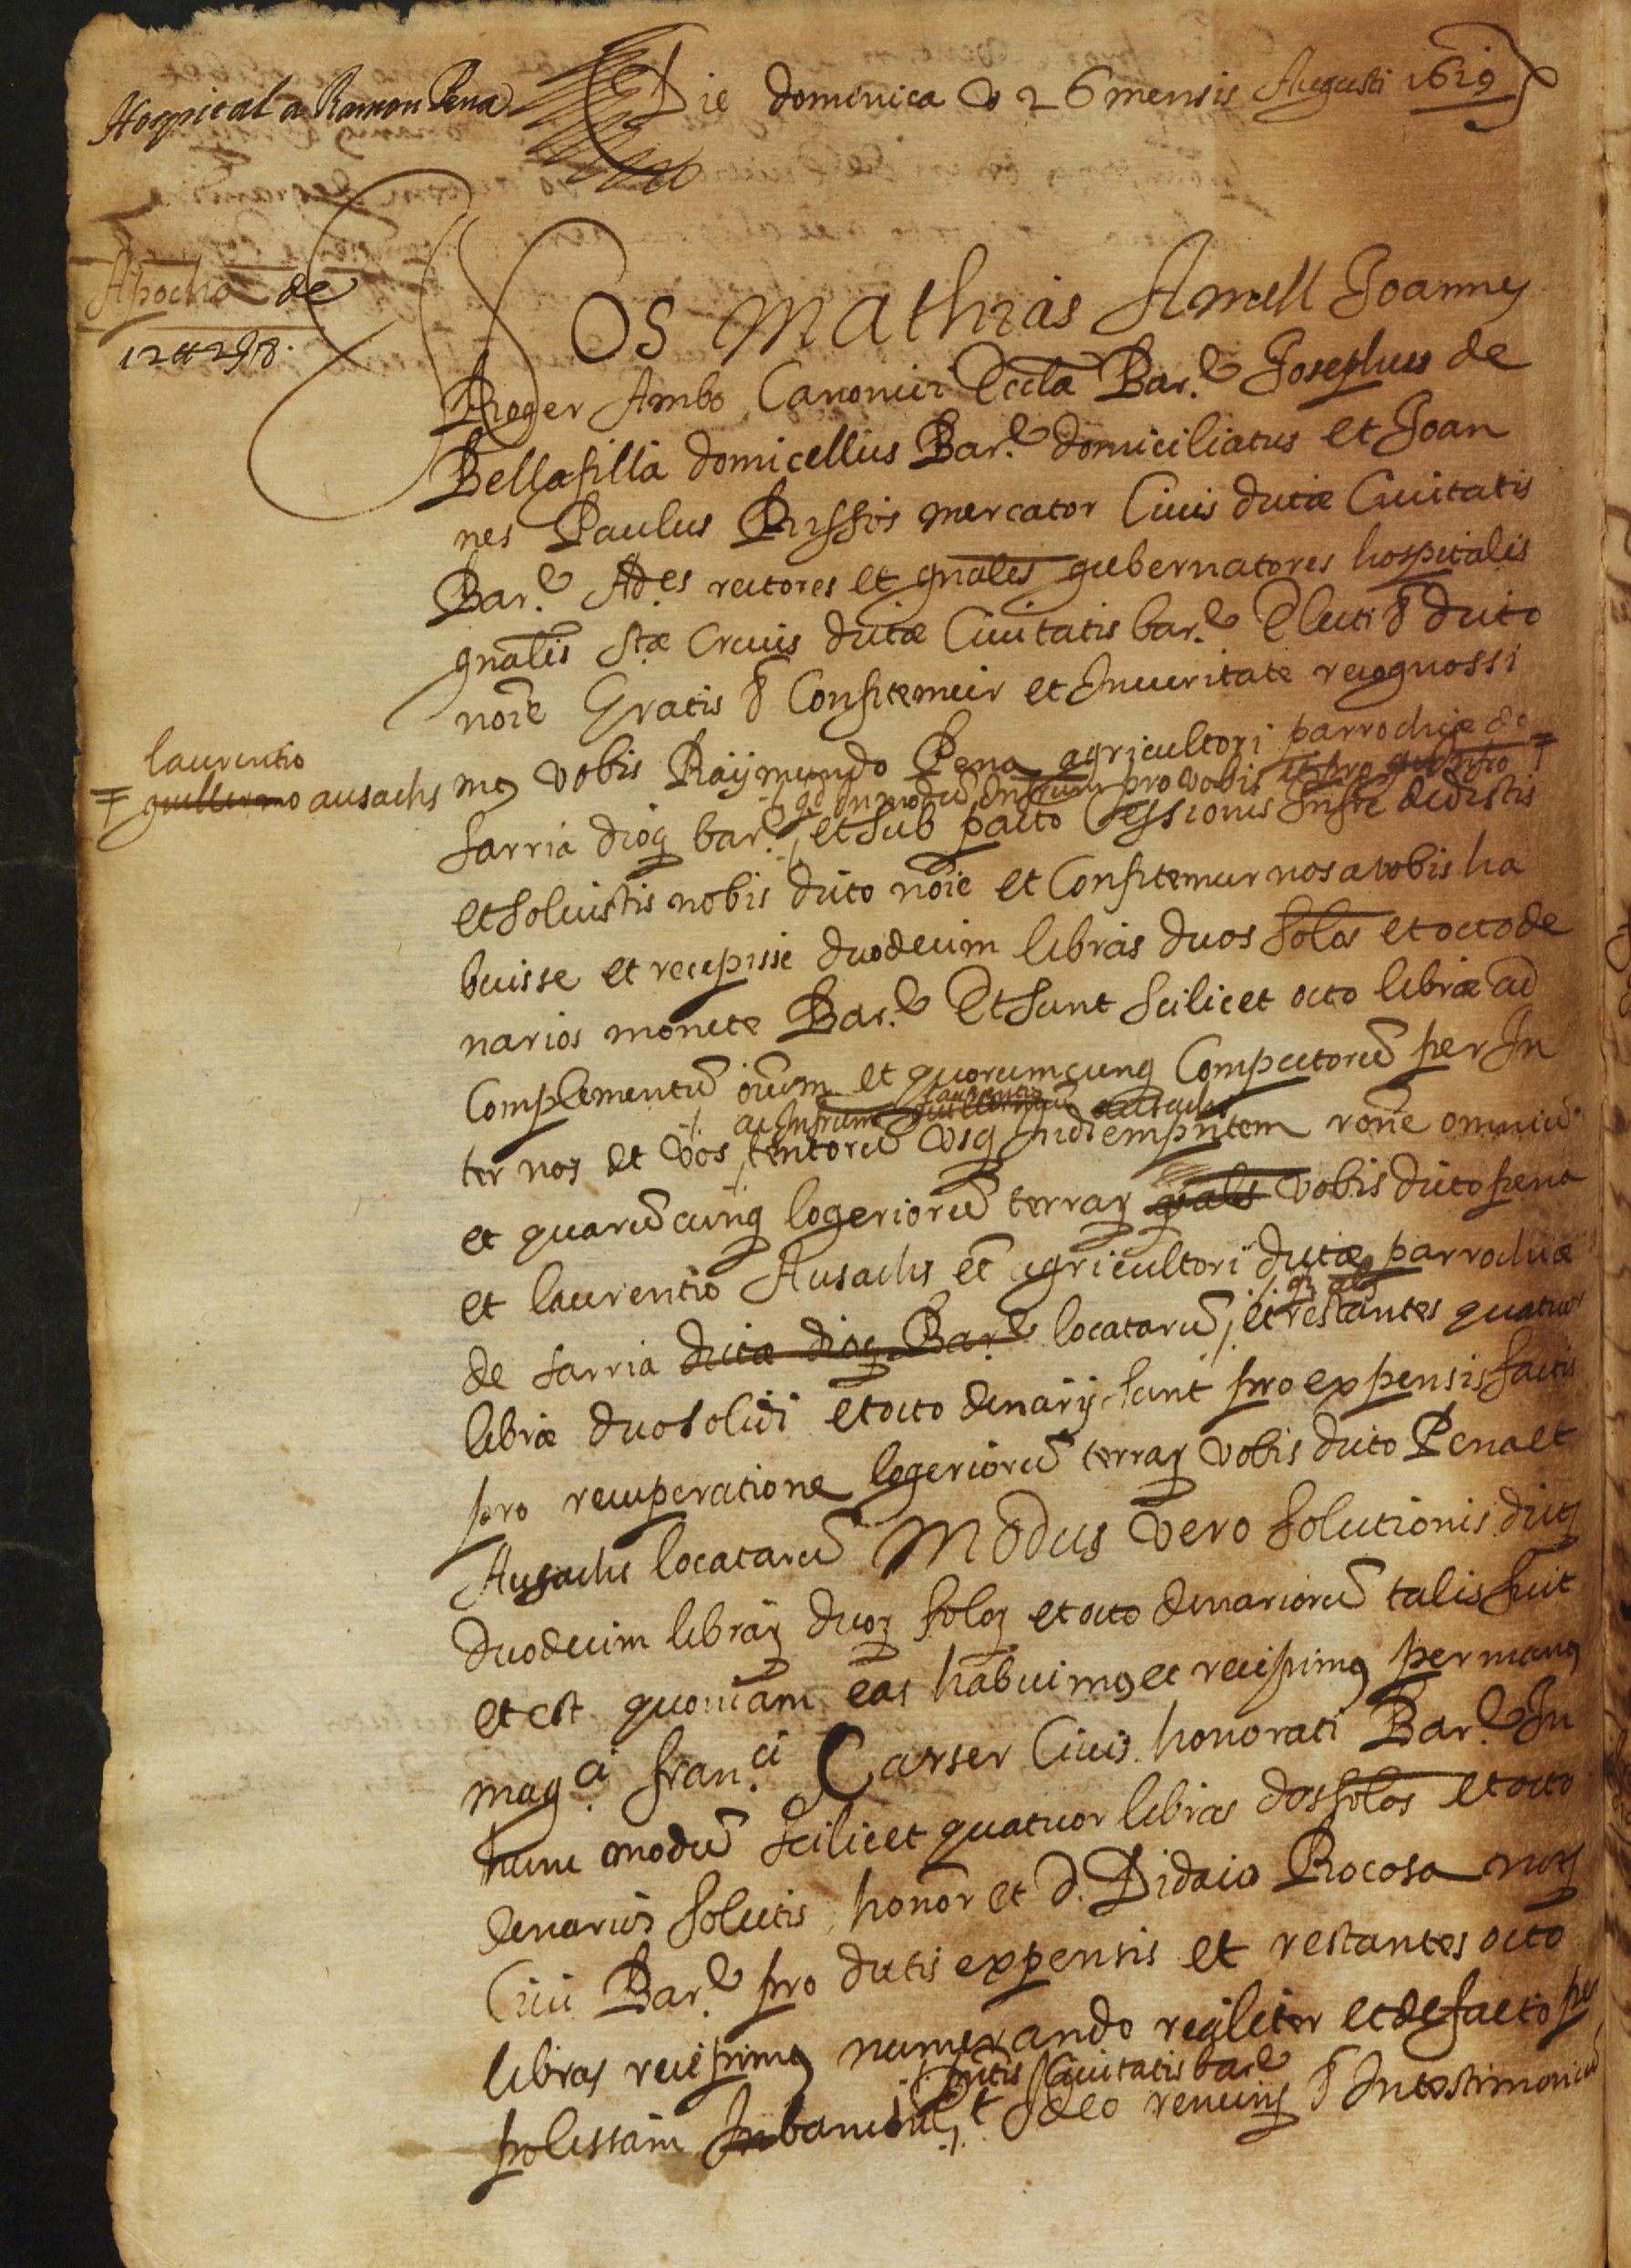 Hospital a Ramon Pena
Die dominica 26 mensis Augusti 1629
Apocha de
12 ₶ 2 s 8.
Nos Mathias Amell Joannes
Roger Ambo Canonici Eccla Bar.e Josephus de
Bellafilla domicellus Bar.e domiciliatus et Joan
nes Paulus mercator Civis dictae Civitatis
Bar.e Ad.es rectores et gnales gubernatores hospitalis
gnalis Stae Crucis dictae Civitatis bar.e dicto
noie Gratis Confitemur et In veritate recognossi
laurentio
guillermo ausachs
mus vobis Raymundo Pena agricultori parrochiae de
qd In modu pro vobis
sarria dioq bar.e et sub pacto Cessionis Infre dedistis
et solvistis nobis dicto noie et Confitemur nos a vobis ha
buisse et recepisse duodecim libras duos solos et octo de
narios monete Bar.e Et sunt scilicet octo librae ad
Complementu oium et quorumcunq Computoru per In
laurentio ausachs
ter nos et vos tentoru usq In diem pntem rone omniu
et quarucunq logerioru terraru vobis dicto pena
et laurentio Ausachs et agricultori dictae parrochiae
de sarria dictae dioq Bar.e locataru, et restantes quatuor
librae duo solidi et octo denarij sunt pro expensis factis
pro recuperatione logerioru terraru vobis dicto Pena et
Ausachs locataru Modus vero solutionis dictaru
duodecim libraru duoru soloru et octo denarioru talis fuit
et est quoniam eas habuimus et recepimus per manus
mag.ci fran.ci Carser Civis honorati Bar.e In
hunc modu scilicet quatuor libras dos solos et octo
denarios solutis honor et d. Didaco Rocosa noty
Civi Bar.e pro dictis expensis et restantes octo
libras recepimus numerando realiter et de facto per
pntis Civitatis bar.e
polissam In bancu Ideo renuncij In testimoniu